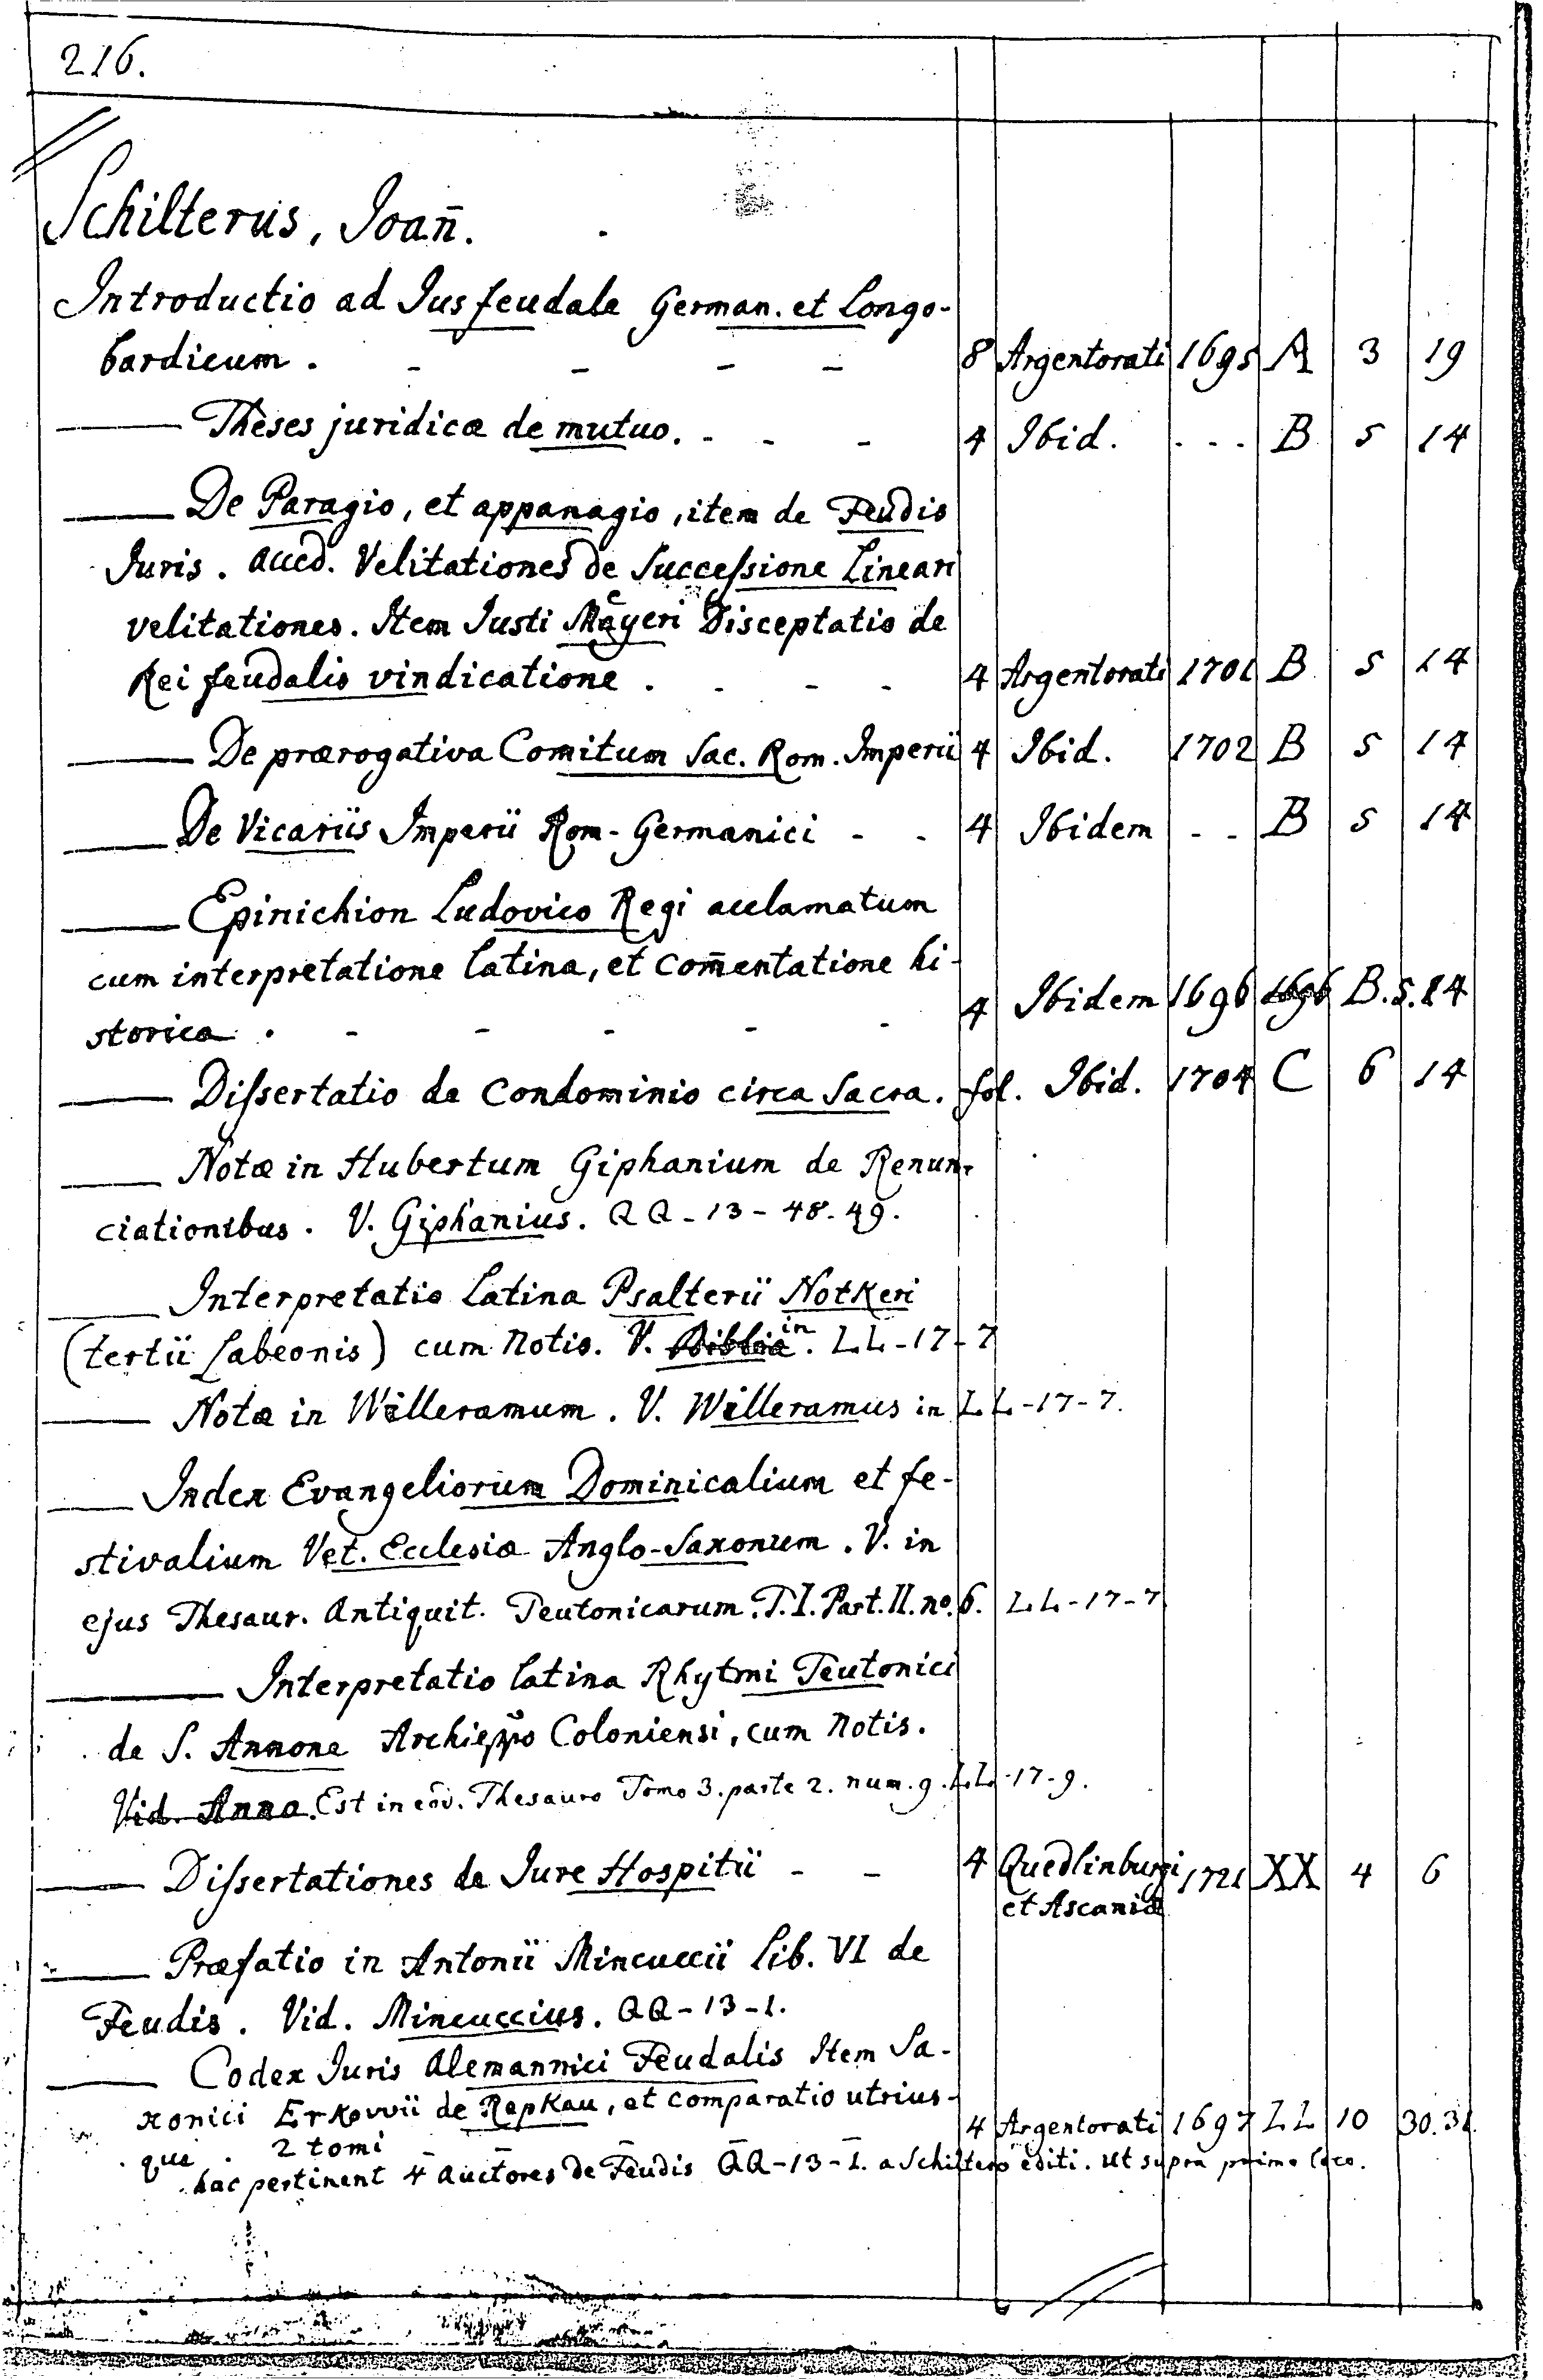 216.
Schilterus, Joan̄.
Introductio ad Jus feudale German. et Longo-
bardicum. - - - - 8 Argentorati 1695 A 3 19
—— Theses juridicæ de mutuo. - - - 4 Ibid. - - - B 5 14
—— De Paragio, et appanagio, item de Feudis
Juris. acced. Velitationes de Successione Lineari
velitationes. Item Justi Mëyeri Disceptatio de
Rei feudalis vindicatione. - - - 4 Argentorati 1701 B 5 14
—— De prærogativa Comitum Sac. Rom. Imperii 4 Ibid. 1702 B 5 14
—— De Vicariis Imperii Rom-Germanici - - 4 Ibidem - - B 5 14
—— Epinichion Ludovico Regi acclamatum
cum interpretatione latina, et com̄entatione hi-
storica. - - - - - 4 Ibidem 1696 1696 B. 5. 14
—— Dissertatio de Condominio circa Sacra. fol. Ibid. 1704 C 6 14
—— Notæ in Hubertum Giphanium de Renun-
ciationibus. V. Giphanius. QQ-13-48.49.
—— Interpretatio Latina Psalterii Notkeri
(tertii Labeonis) cum Notis. V. Biblia in. LL-17-7
—— Notæ in Willeramum. V. Willeramus in LL-17-7.
—— Index Evangeliorum Dominicalium et fe-
stivalium Vet. Ecclesiæ Anglo-Saxonum. V. in
ejus Thesaur. Antiquit. Teutonicarum. T.I. Part. II. no. 6. LL-17-7
—— Interpretatio latina Rhytmi Teutonici
de S. Annone Archiepp̄o Coloniensi, cum Notis.
Vid. Anna. Est in eōd. Thesauro Tomo 3. parte 2. num. 9. LL-17-9.
—— Dissertationes de Jure Hospitii - - 4 Quedlinburgi 1721 XX 4 6
et Ascaniæ
—— Præfatio in Antonii Mincuccii Lib. VI de
Feudis. Vid. Mincuccius. QQ-13-1.
—— Codex Juris Alemannici Feudalis Item Sa-
xonici Erkovvii de Repkau, et comparatio utrius-
que. 2 tomi - - - - - 4 Argentorati 1697 LL 10 30.31.
hac pertinent 4 auctores de Feudis QQ-13-1. a Schiltero editi. ut supra primo loco.